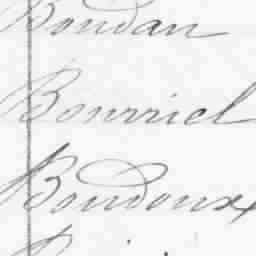 Boudan
Bourriel
Boudoux